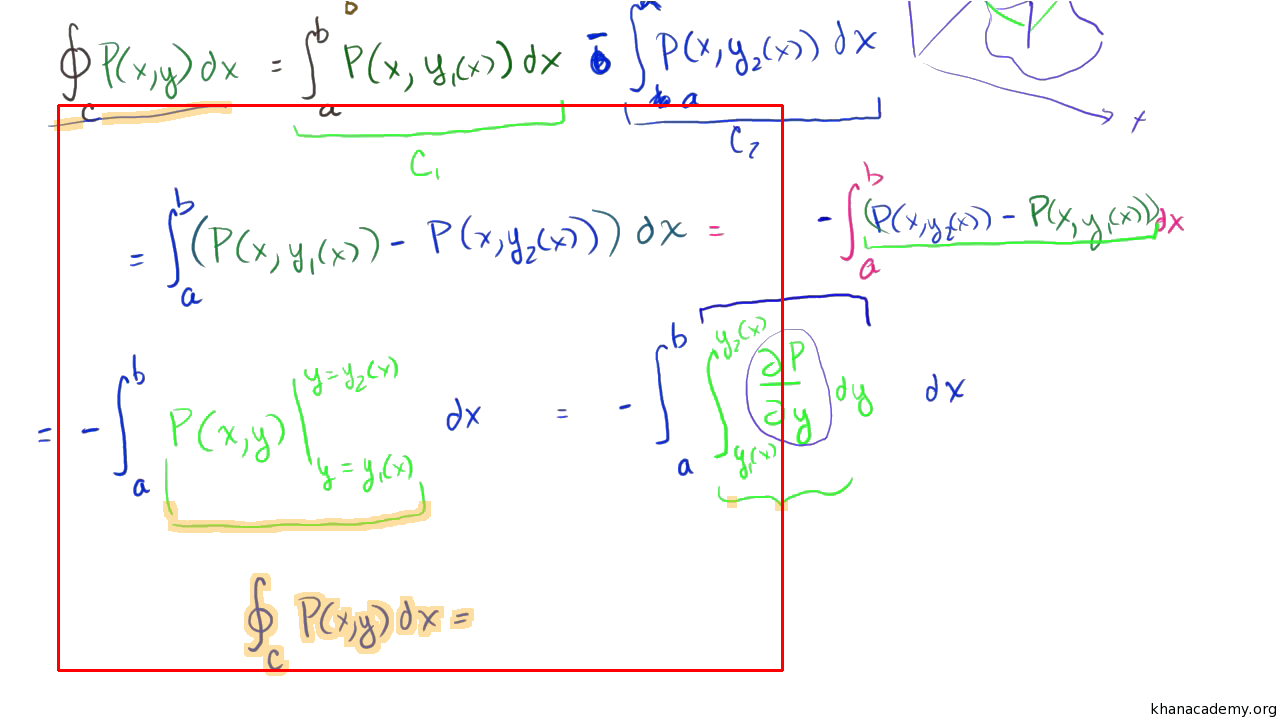 ∮_C P(x,y) dx = ∫_a^b P(x, y₁(x)) dx - ∫_a P(x, y₂(x)) dx
C₁ C₂
x
= ∫_a^b (P(x, y₁(x)) - P(x, y₂(x))) dx = - ∫_a^b (P(x, y₂(x)) - P(x, y₁(x))) dx
= - ∫_a^b P(x,y) |_{y = y₁(x)}^{y = y₂(x)} dx = - ∫_a^b ∫_{y₁(x)}^{y₂(x)} ∂P/∂y dy dx
∮_C P(x,y) dx =
khanacademy.org